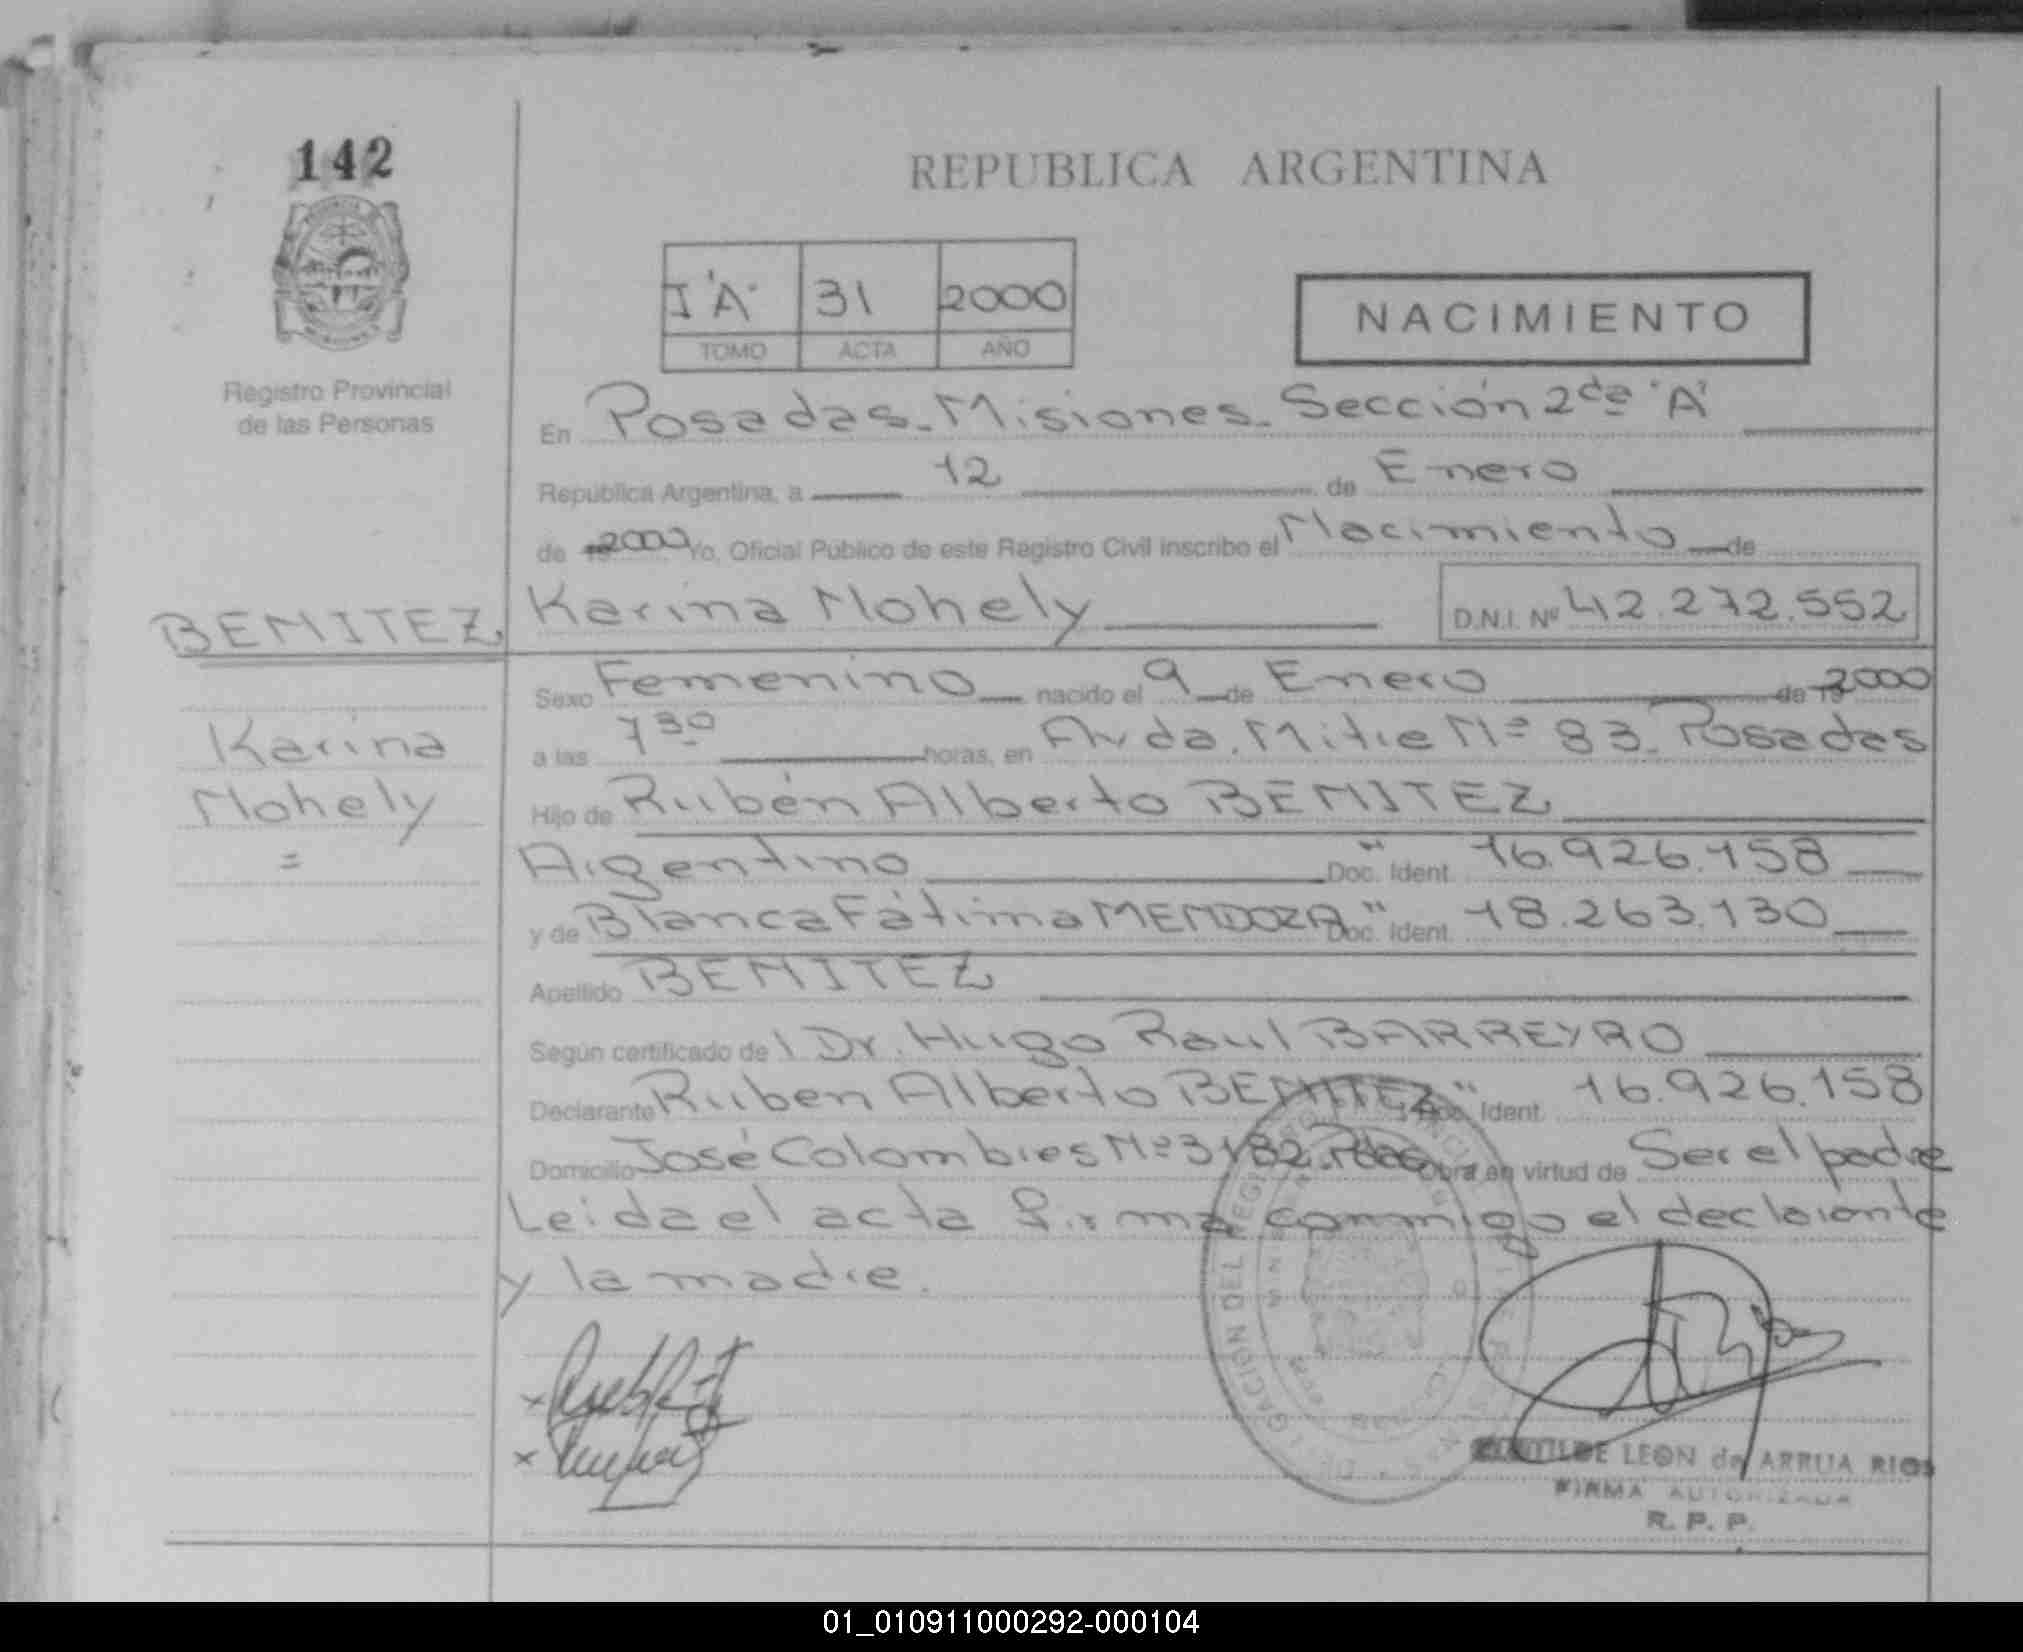 142
REPUBLICA ARGENTINA
I "A" 31 2000
TOMO ACTA AÑO
NACIMIENTO
Registro Provincial
de las Personas
En Posadas - Misiones - Sección 2da "A"
República Argentina, a 12 de Enero
de 2000 Yo, Oficial Público de este Registro Civil inscribo el Nacimiento de
Karina Nohely D.N.I. Nº 42.272.552
BENITEZ
Sexo Femenino nacido el 9 de Enero de 2000
Karina
a las 7 30 horas, en Avda. Mitre Nº 83 - Posadas
Nohely
Hijo de Rubén Alberto BENITEZ
=
Argentino Doc. Ident. 16.926.158
y de Blanca Fátima MENDOZA Doc. Ident. 18.263.130
Apellido BENITEZ
Según certificado del Dr. Hugo Raul BARREYRO
Declarante Ruben Alberto BENITEZ Doc. Ident. 16.926.158
Domicilio José Colombres Nº 3182 Pdas Obra en virtud de Ser el padre
Leida el acta firma conmigo el declarante
y la madre.
LEON de ARRUA RIOS
FIRMA AUTORIZADA
R. P. P.
01_010911000292-000104